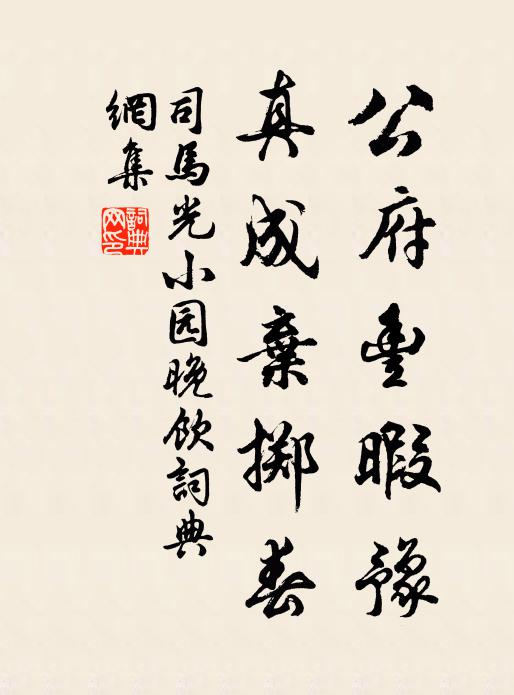 公府豊暇豫
真成棄掷春
司馬光小园晚饮詞典
網集
詞典网印